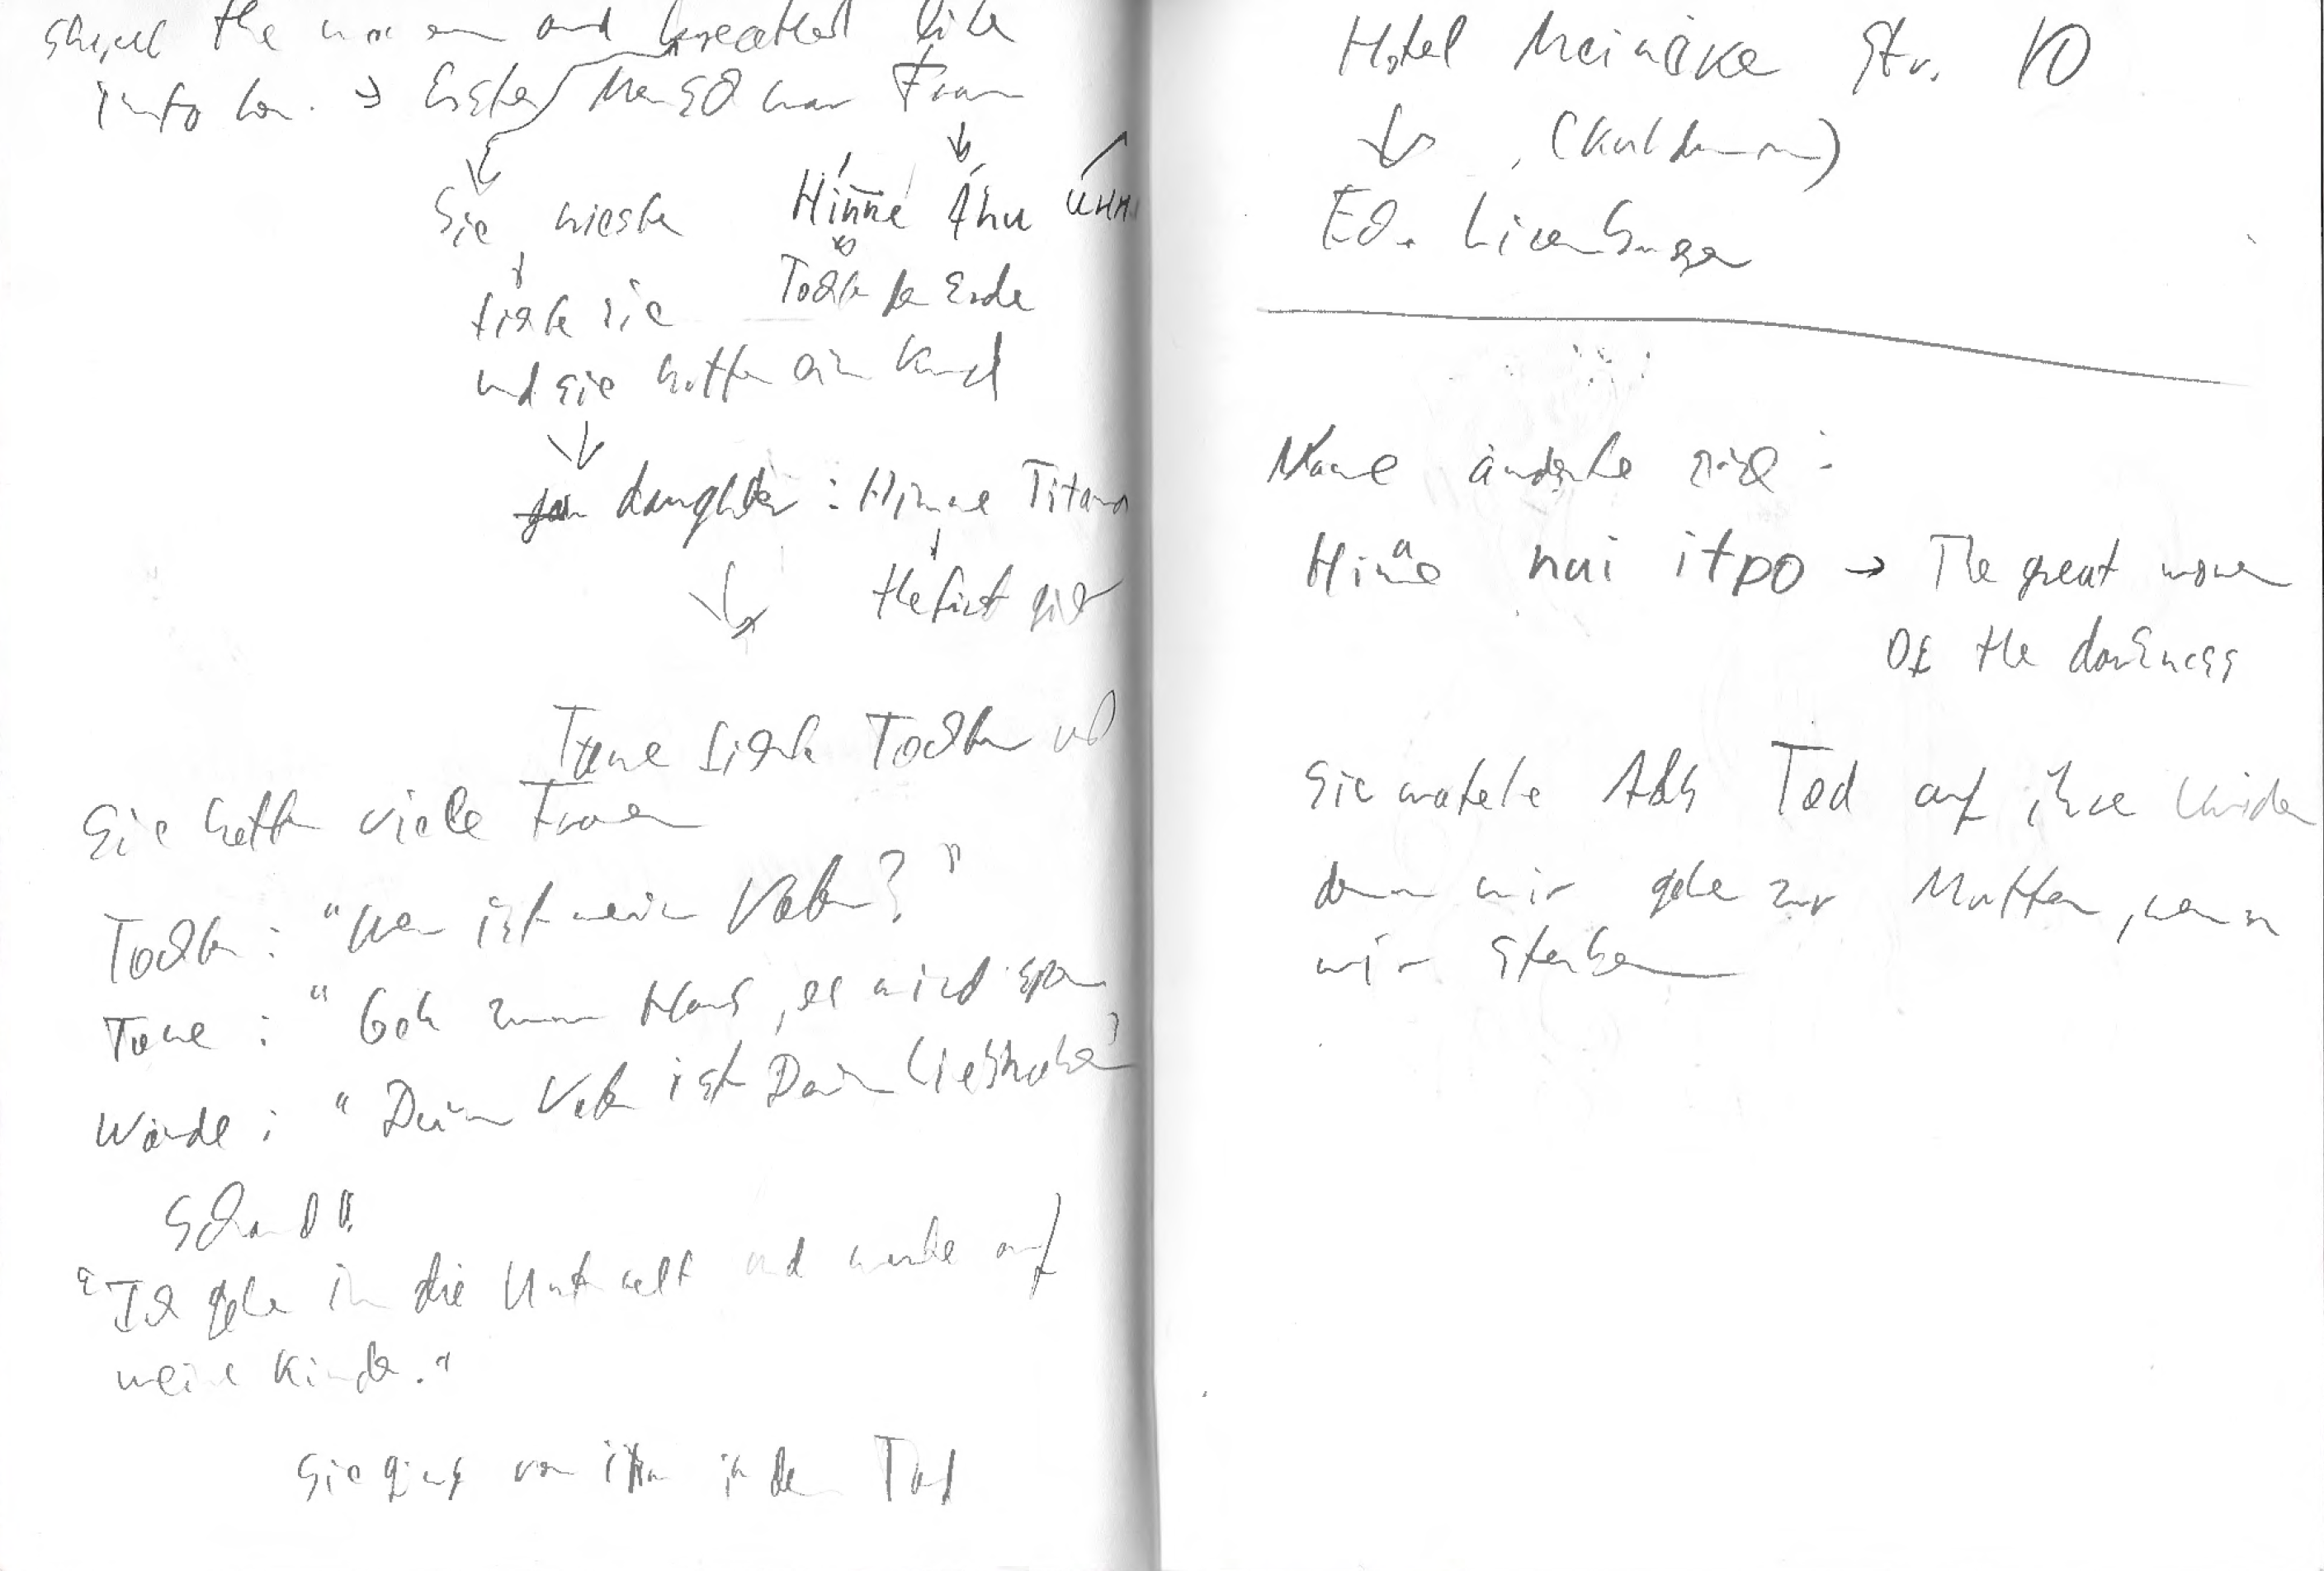 shaped the woman and breathed life
into her. → Erster Mensch war Frau
Sie nieste Hinne Ahu
Tochter der Erde
fickte sie
und sie hatten ein Kind
daughter : Hinne Titama
the first girl
Tane fickte Tochter und
Sie hatten viele Frauen
Tochter : "Wer ist mein Vater?"
Tane : "Geh zum Haus, es wird
Wände : "Dein Vater ist Dein Liebhaber"
Schand
"Ich gehe in die Unterwelt und warte auf
meine Kinder."
Sie ging von ihm in den Tod
Hotel Meineke Str. 10
(Kuhdamm)
Lietzenburger
Name änderte sich :
Hine nui itpo → The great woman
Of the darkness
Sie wartete Tod auf ihre Kinder
denn wir gehen zur Mutter, wenn
wir sterben